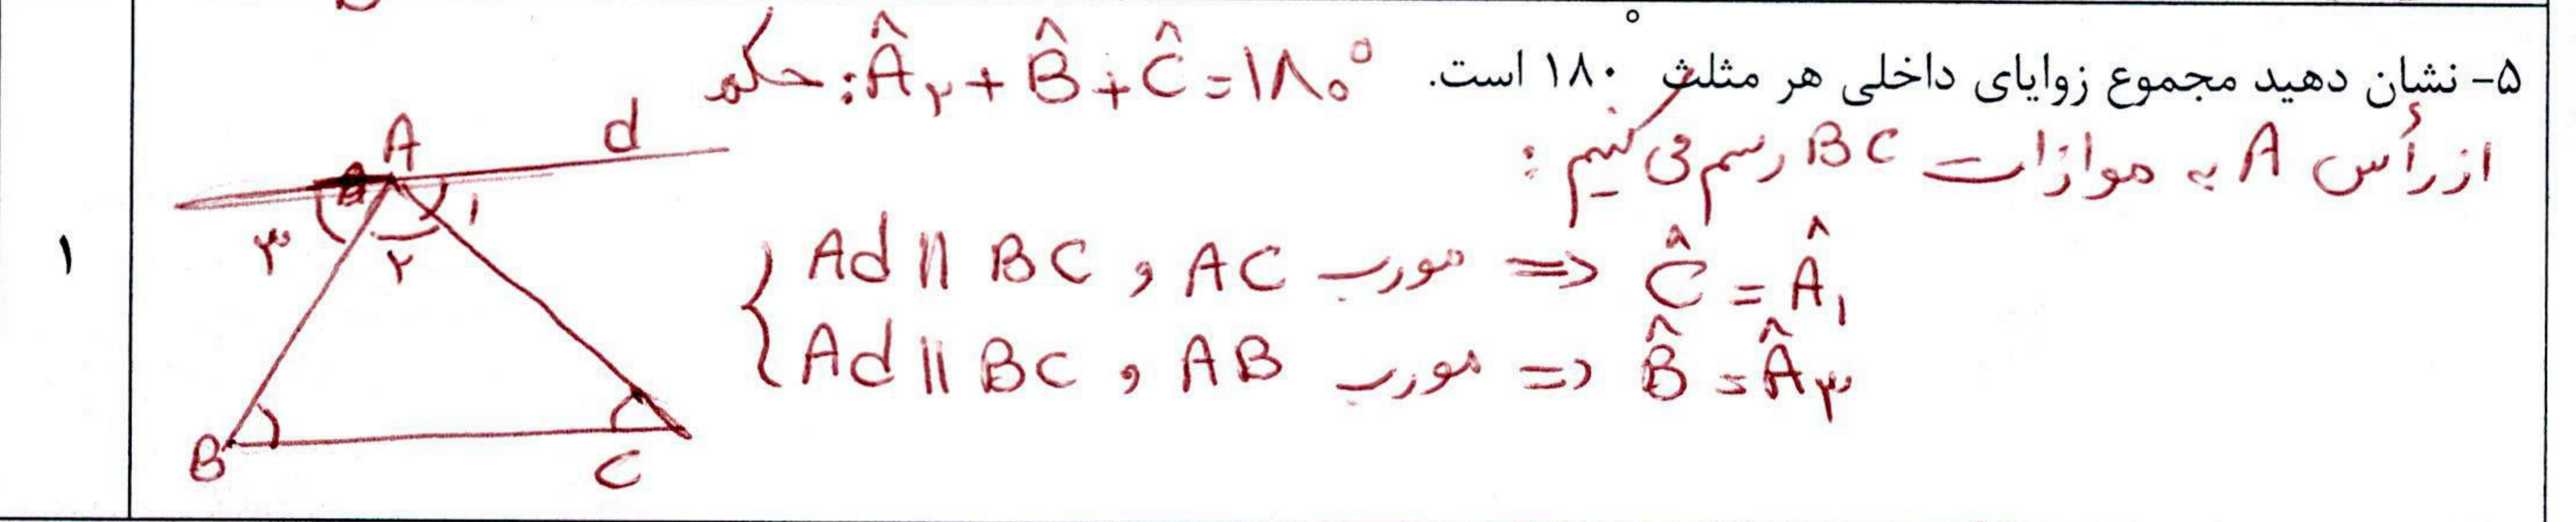 ۵- نشان دهید مجموع زوایای داخلی هر مثلث ۱۸۰° است. حکم: Â۲ + B̂ + Ĉ = ۱۸۰°
از رأس A به موازات BC رسم می کنیم:
Ad || BC و AC مورب => Ĉ = Â۱
Ad || BC و AB مورب => B̂ = Â۳
A
d
۱
۲
۳
B
C
۱